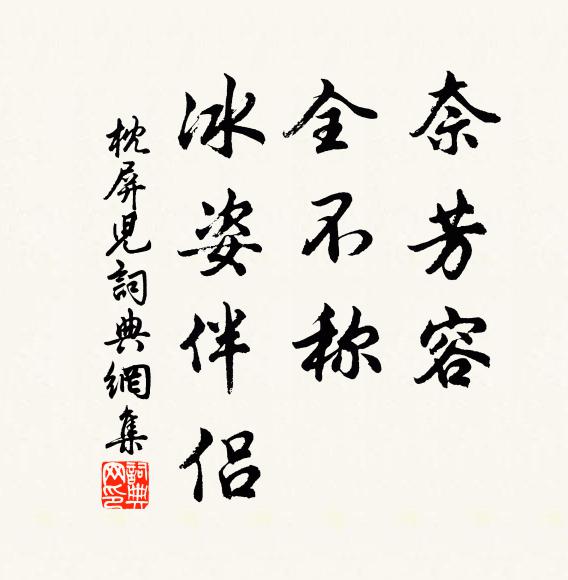 奈芳容
全不称
冰姿伴侣
枕屏児詞典網集
詞典网印